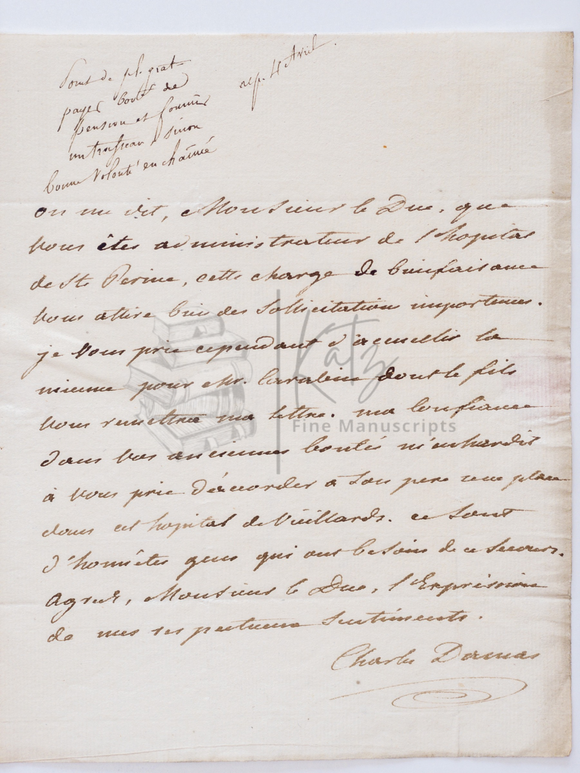 Point de pl. grat
payer bout de
pension et fournir
un trousseau sinon
bonne Volonté enchainée
rep. 4 Avril
on me dit, Monsieur le Duc, que
vous êtes administrateur de l'hopital
de Ste Perine, cette charge de bienfaisance
vous attire bien des Sollicitation importunes.
je vous prie cependant d'acueillir la
mienne pour Mr. dont le fils
vous remettra ma lettre. ma confiance
dans vos anciennes bontés m'enhardit
à vous prie d'accorder à Son pere une place
dans cet hopital de Vieillards. ce Sont
d'honnêtes gens qui ont besoin de ce Secours.
Agréez, Monsieur le Duc, l'Expression
de mes respectueux Sentiments.
Charles Damas
Katz
Fine Manuscripts